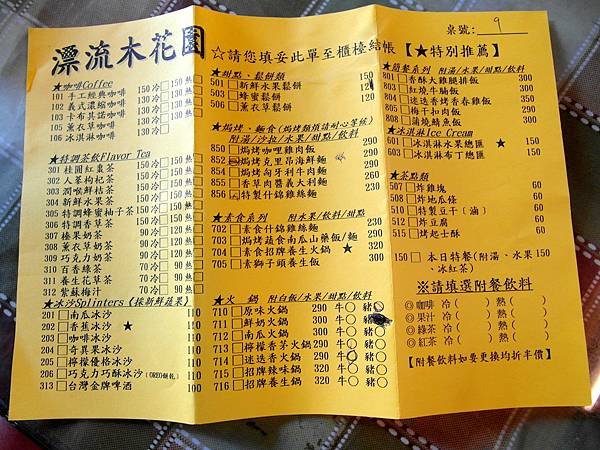 漂流木花園
☆請您填妥此單至櫃檯結帳
桌號: 9
★咖啡Coffee
101 手工經典咖啡 150 冷□150 熱□
102 義式濃縮咖啡 130 冷□130 熱□
103 卡布其諾咖啡 150 冷□150 熱□
105 薰衣草咖啡 130 冷□130 熱□
106 冰淇淋咖啡 130 冷□
★特調茶飲Flavor Tea
301 桂圓紅棗茶
302 人蔘枸杞茶
303 潤喉鮮桔茶
304 新鮮水果茶
305 特調蜂蜜柚子茶
307 榛果奶茶
308 薰衣草奶茶
309 巧克力奶茶
310 百香綠茶
311 養生花草茶
312 紫蘇梅汁
★冰沙Splinters《採新鮮蔬果》
201 □南瓜冰沙 110
202 □香蕉冰沙 ★
203 □咖啡冰沙
204 □奇異果冰沙
205 □檸檬優格冰沙
206 □巧克力巧酥冰沙(OREO餅乾) 110
313 □台灣金牌啤酒 100
★甜點、鬆餅類
501 □新鮮水果鬆餅 150
503 □蜂蜜鬆餅
506 □薰衣草鬆餅
★焗烤、麵食(焗烤類煩請耐心等候)
附湯/沙拉/水果/甜點/飲料
850 □焗烤咖哩雞肉飯 290
852 焗烤克里昂海鮮麵 290
854 □焗烤匈牙利牛肉麵 290
855 □香草肉醬義大利麵 260
856 □特製什錦雞絲麵 230
★素食系列 附水果/飲料/甜點
702 □素食什錦雞絲麵 230
703 □焗烤蔬食南瓜山藥飯/麵 290
704 □素食招牌養生火鍋 ★ 320
705 □素獅子頭養生飯 300
★火 鍋 附白飯/水果/甜點/飲料
710 □原味火鍋 290 牛○ 豬○
711 □鮮奶火鍋 300 牛○ 豬
712 □南瓜火鍋 300 牛○ 豬○
713 □檸檬香茅火鍋 290 牛○ 豬○
714 □迷迭香火鍋 290 牛○ 豬○
715 □招牌辣味鍋 320 牛○ 豬○
716 □招牌養生鍋 320 牛○ 豬○
【★特別推薦】
★簡餐系列 附湯/水果/甜點/飲料
801 □香酥大雞腿排飯 300
803 □紅燒牛腩飯 300
804 □迷迭香烤春雞飯 300
805 □梅干扣肉飯 290
808 □蒲燒鯛魚飯 300
★冰淇淋Ice Cream
601 □冰淇淋水果總匯 ★ 150
603 □冰淇淋布丁總匯 150
★茶點類
507 □炸雞塊 60
508 □炸地瓜條 60
510 □特製豆干〔滷〕 60
512 □炸豆腐 60
515 □烤起士酥 60
150 □ 本日特餐(附湯、水果、冰紅茶) 150
※請填選附餐飲料
◎咖啡 冷( ) 熱( )
◎果汁 冷( ) 熱( )
◎綠茶 冷( ) 熱( )
◎紅茶 冷( ) 熱( )
【附餐飲料如要更換均折半價】